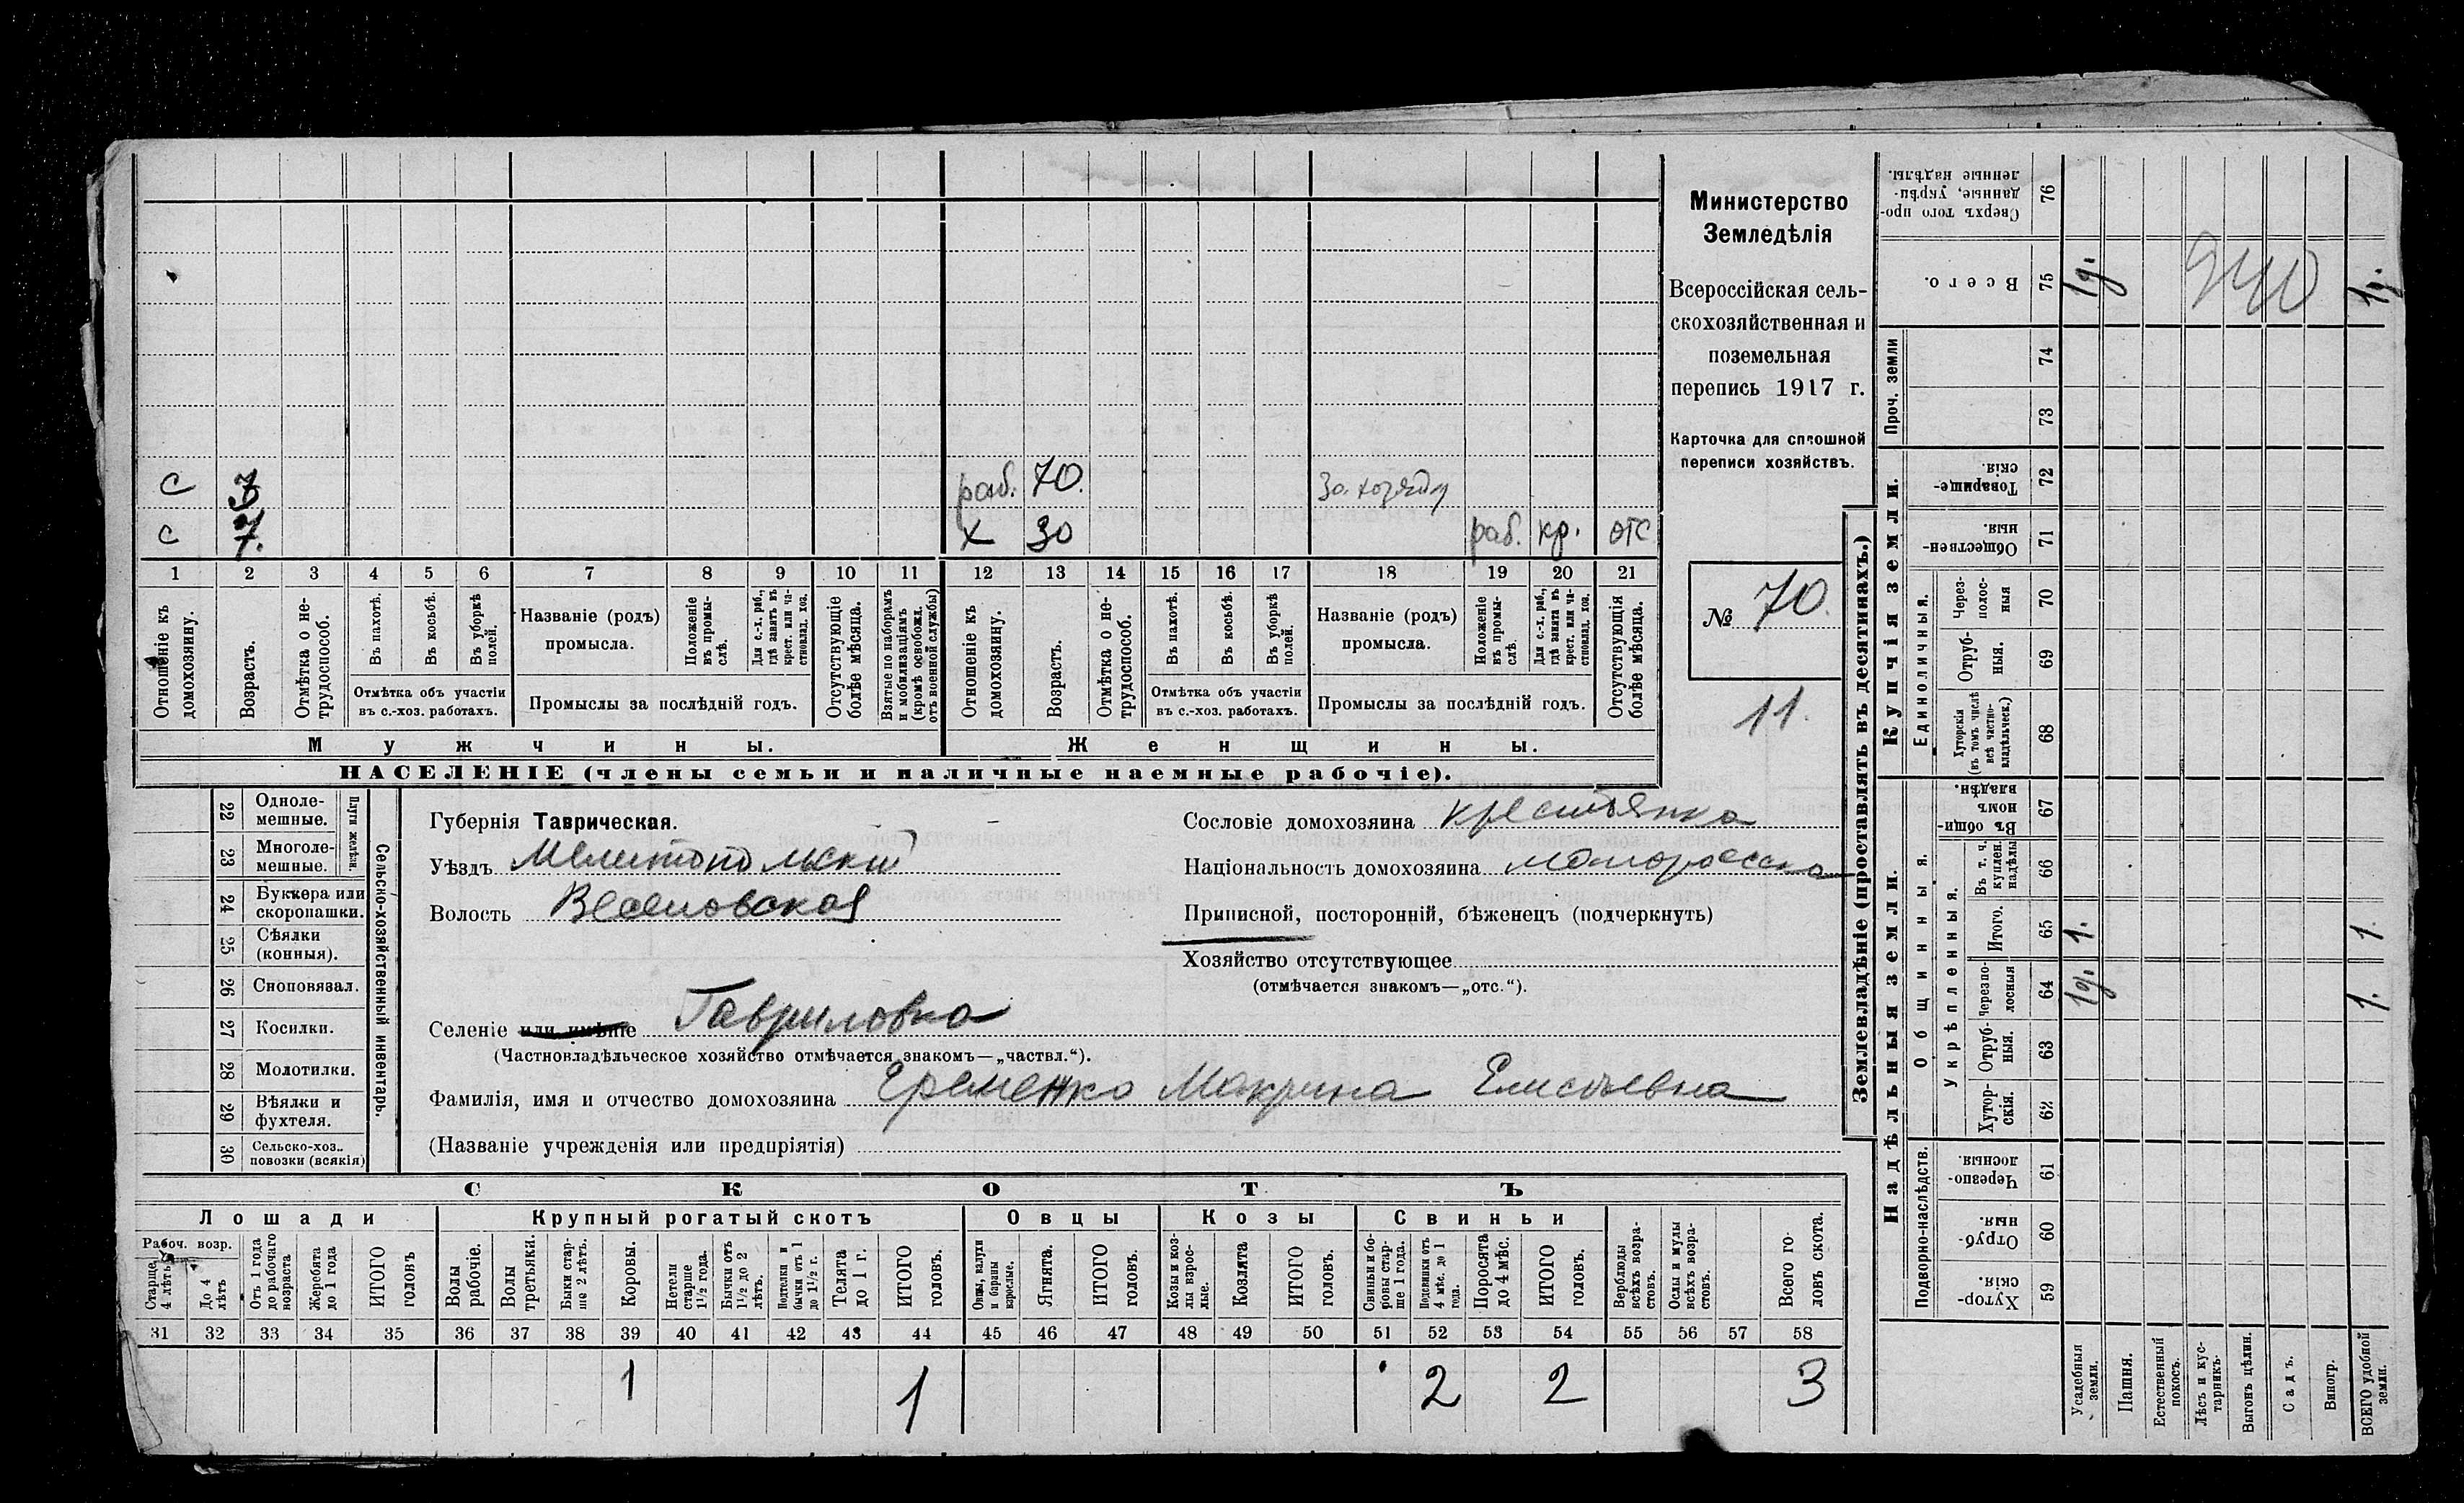 с 3 раб. 70.
с 7. х 30 раб. кр. отс
1 2 3 4 5 6 7 8 9 10 11 12 13 14 15 16 17 18 19 20 21
Отношеніе къ домохозяину.
Возрастъ.
Отмѣтка о нетрудоспособ.
Въ пахотѣ.
Въ косьбѣ.
Въ уборкѣ полей.
Отмѣтка объ участіи
въ с.-хоз. работахъ.
Названіе (родъ)
промысла.
Положеніе въ промыслѣ.
Для с.-х. раб., гдѣ занятъ въ крест. или частновлад. хоз.
Промыслы за послѣдній годъ.
Отсутствующіе болѣе мѣсяца.
Взятые по наборамъ и мобилизаціямъ (кромѣ освобожд. отъ военной службы)
Отношеніе къ домохозяину.
Возрастъ.
Отмѣтка о нетрудоспособ.
Въ пахотѣ.
Въ косьбѣ.
Въ уборкѣ полей.
Отмѣтка объ участіи
въ с.-хоз. работахъ.
Названіе (родъ)
промысла.
Положеніе въ промыслѣ.
Для с.-х. раб., гдѣ занята въ крест. или частновлад. хоз.
Промыслы за послѣдній годъ.
Отсутствующія болѣе мѣсяца.
Мужчины.
Женщины.
НАСЕЛЕНІЕ (члены семьи и наличные наемные рабочіе).
Министерство
Земледѣлія
Всероссійская сель-
скохозяйственная и
поземельная
перепись 1917 г.
Карточка для сплошной
переписи хозяйствъ.
№ 70.
11.
22 Одноле-
мешные.
23 Многоле-
мешные.
Плуги желѣзн.
24 Буккера или
скоропашки.
25 Сѣялки
(конныя).
26 Сноповязал.
27 Косилки.
28 Молотилки.
29 Вѣялки и
фухтеля.
30 Сельско-хоз.
повозки (всякія)
Сельско-хозяйственный инвентарь.
Губернія Таврическая.
Уѣздъ Мелитопольскій
Волость Веселовская
Селеніе или имѣніе Гавриловка
(Частновладѣльческое хозяйство отмѣчается знакомъ—„частвл.“).
Фамилія, имя и отчество домохозяина Еременко Макрина Елисѣевна
(Названіе учрежденія или предпріятія)
Сословіе домохозяина крестьянка
Національность домохозяина малоросска
Приписной, посторонній, бѣженецъ (подчеркнуть)
Хозяйство отсутствующее
(отмѣчается знакомъ—„отс.“).
СКОТЪ
Лошади
Крупный рогатый скотъ
Овцы
Козы
Свиньи
Рабоч. возр.
Старше 4 лѣтъ
До 4 лѣтъ
Отъ 1 года до рабочаго возраста
Жеребята до 1 года
ИТОГО головъ
Волы рабочіе.
Волы третьяки.
Быки старше 2 лѣтъ.
Коровы.
Нетели старше 1½ года.
Бычки отъ 1½ до 2 лѣтъ.
Подтелки и бычки отъ 1 до 1½ г.
Телята до 1 г.
ИТОГО головъ.
Овцы, валухи и бараны взрослые.
Ягнята.
ИТОГО головъ.
Козы и козлы взрослые.
Козлята
ИТОГО головъ.
Свиньи и боровы старше 1 года.
Подсвинки отъ 4 мѣс. до 1 года.
Поросята до 4 мѣс.
ИТОГО головъ.
Верблюды всѣхъ возрастовъ.
Ослы и мулы всѣхъ возрастовъ.
Всего головъ скота.
31 32 33 34 35 36 37 38 39 40 41 42 43 44 45 46 47 48 49 50 51 52 53 54 55 56 57 58
1 1 2 2 3
Землевладѣніе (проставлять въ десятинахъ.)
Надѣльныя земли.
Купчія земли.
Проч. земли
Подворно-наслѣдств.
Общинныя.
Укрѣпленныя.
Единоличныя.
Хуторскія 59
Отрубныя. 60
Черезполосныя. 61
Хуторскія. 62
Отрубныя. 63
Черезполосныя 64
Итого. 65
Въ т. ч. куплен. надѣлы 66
Въ общинномъ владѣн. 67
Хуторскія (въ томъ числѣ всѣ частновладѣльческ.) 68
Отрубныя. 69
Черезполосныя 70
Общественныя. 71
Товарищескія. 72
73
74
Всего. 75
Сверхъ того проданные, укрѣпленные надѣлы. 76
Усадебныя земли.
Пашня.
Естественный покосъ.
Лѣсъ и кустарникъ.
Выгонъ цѣлин.
Садъ.
Виногр.
ВСЕГО удобной земли.
1д. 1. 1д.
1. 1. 1д.
940